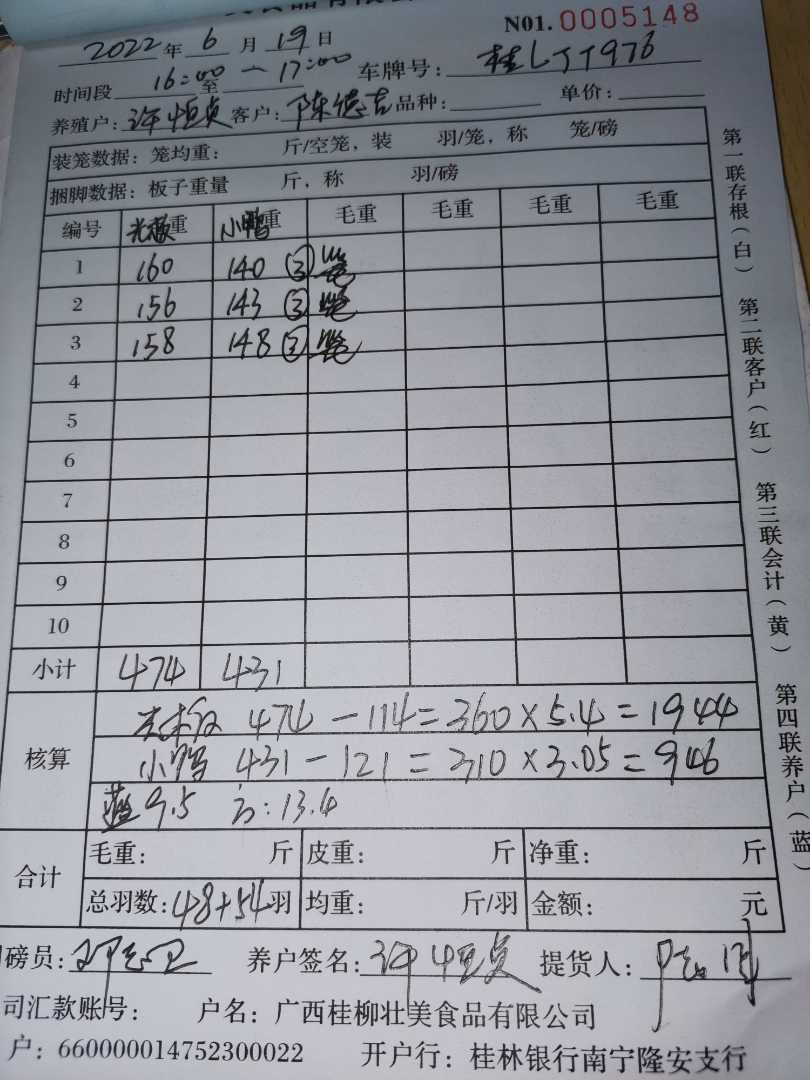 N01. 0005148
2022 年 6 月 19 日
时间段 16:00 至 17:00 车牌号: 桂L
养殖户: 许恒贞 客户: 陈德吉 品种: 单价:
装笼数据: 笼均重: 斤/空笼, 装 羽/笼, 称 笼/磅
捆脚数据: 板子重量 斤, 称 羽/磅
编号 重 小鸭 重 毛重 毛重 毛重 毛重
1 160 140 ③ 笼
2 156 143 ③ 笼
3 158 148 ③ 笼
4
5
6
7
8
9
10
小计 474 431
核算
474 - 114 = 360 × 5.4 = 1944
小鸭 431 - 121 = 310 × 3.05 = 946
蓝 9.5 : 13.4
合计
毛重: 斤 皮重: 斤 净重: 斤
总羽数: 48+54 羽 均重: 斤/羽 金额: 元
磅员: 养户签名: 许恒贞 提货人:
司汇款账号: 户名: 广西桂柳壮美食品有限公司
户: 660000014752300022 开户行: 桂林银行南宁隆安支行
第一联存根(白) 第二联客户(红) 第三联会计(黄) 第四联养户(蓝)